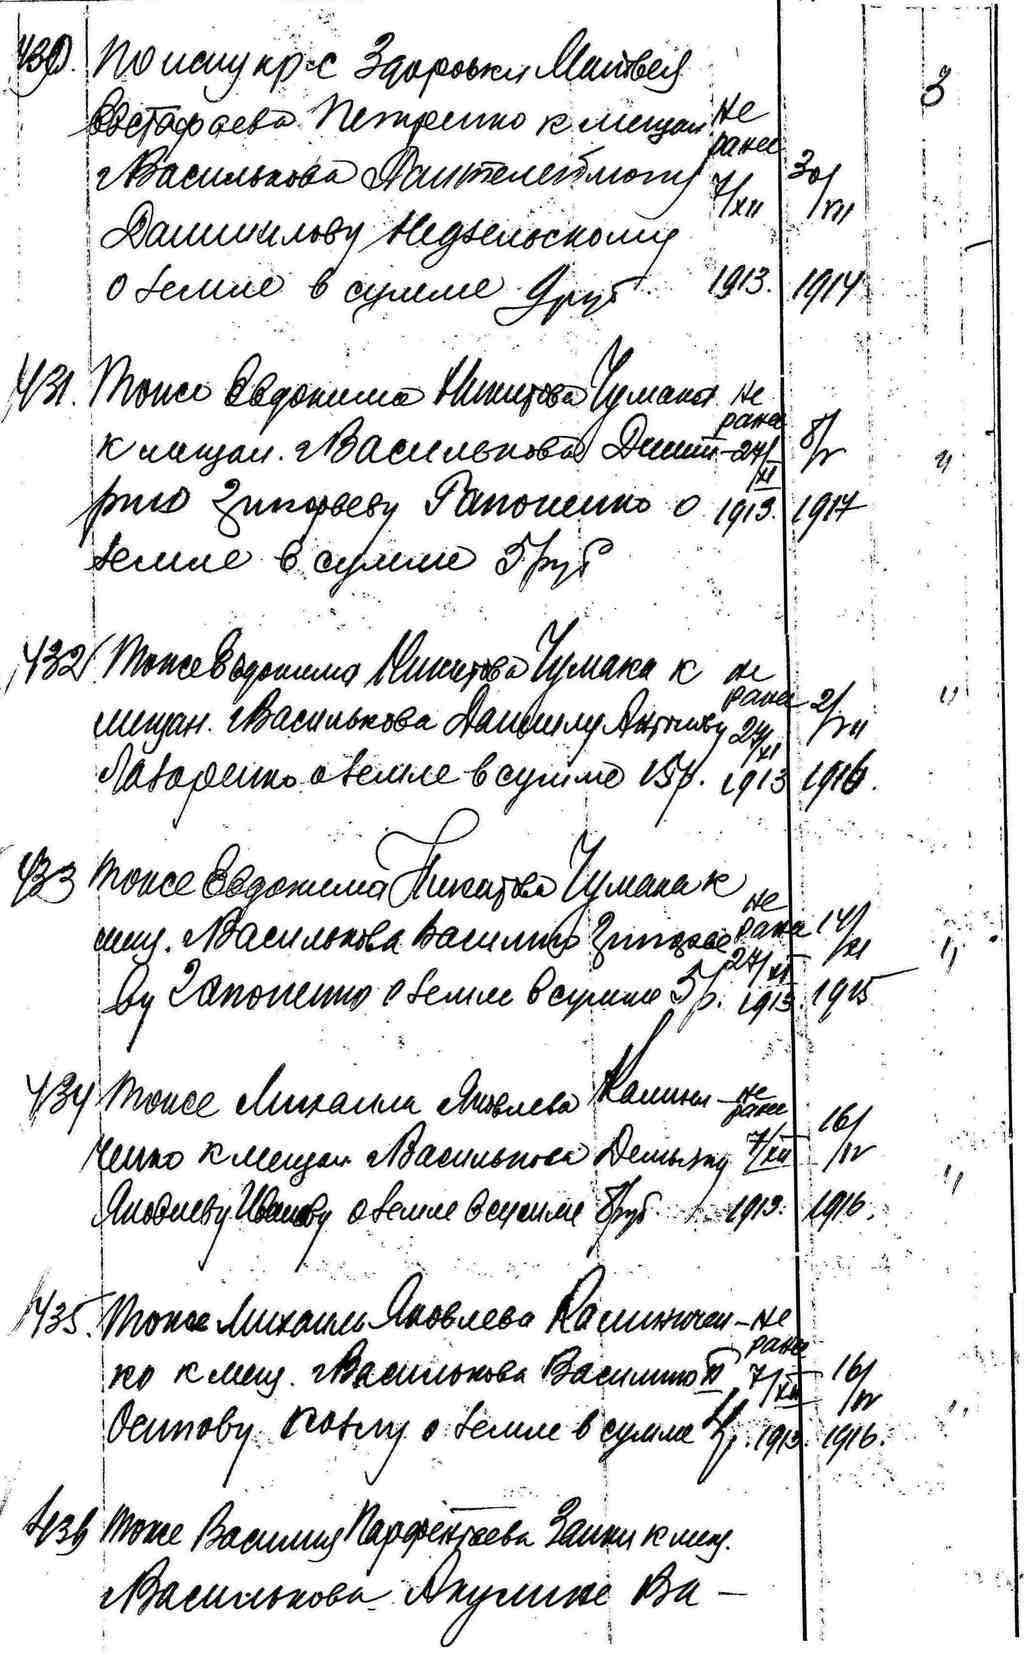 430. По иску кр-с Здоровки Матвея 3
Евстафиева Петренко к мещан. не ранее
г Василькова Пантелеймону 7/XII 30/VII
Даниилову Недзельскому
о земле в сумме 9 руб 1913. 1914
431. Тоже Евдокима Никитова Чумака не ранее
к мещан. г Василькова Димит- 27/XI 8/IV "
рию Григорьеву Гапоненко о 1913. 1917
земле в сумме 5 руб
432 Тоже Евдокима Никитова Чумака к не ранее "
мещан. г Василькова Даниилу Антонову 27/XI 2/VII
Лазаренко о земле в сумме 15 р. 1913 1916.
433 Тоже Евдокима Никитова Чумака к не
мещ. г Василькова Василию Григорье- ранее 14/XI "
ву Гапоненко о земле в сумме 5 р. 27/XI 1913. 1915
434 Тоже Михаила Яковлева Калини- не ранее
ченко к мещан г Василькова Демьяну 7/XII 16/IV "
Яковлеву Иванову о земле в сумме 8 руб 1913. 1916.
435. Тоже Михаила Яковлева Калиничен- не ранее
ко к мещ. г Василькова Василию 7/XII 16/IV "
Осипову Козлу о земле в сумме 4 р. 1913. 1916.
436 Тоже Василия Парфентиева Заики к мещ.
г Василькова Акулине Ва-